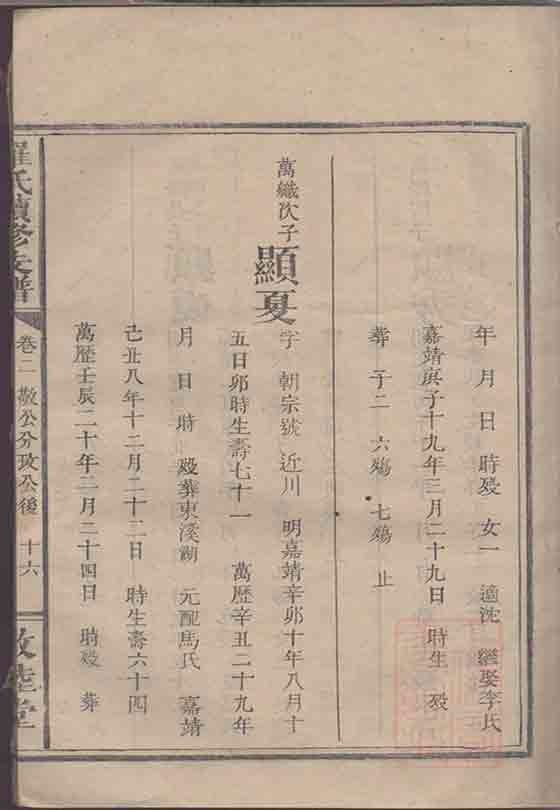 年月日時歿女一適沈繼娶李氏
嘉靖庚子十九年三月二十九日時生歿
葬子二六殤七殤止
萬織次子
顯夏
字朝宗號近川明嘉靖辛卯十年八月十
五日卯時生壽七十一萬歷辛丑二十九年
月日時歿葬東溪湖元配馬氏嘉靖
己丑八年十二月二十二日時生壽六十四
萬歷壬辰二十年二月二十四日時歿葬
羅氏續修支譜
卷二敬公分攻公後十六
敦睦堂